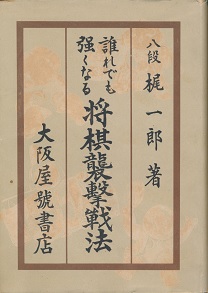 八段 梶一郎著
誰れでも
強くなる
将棋襲撃戦法
大阪屋號書店